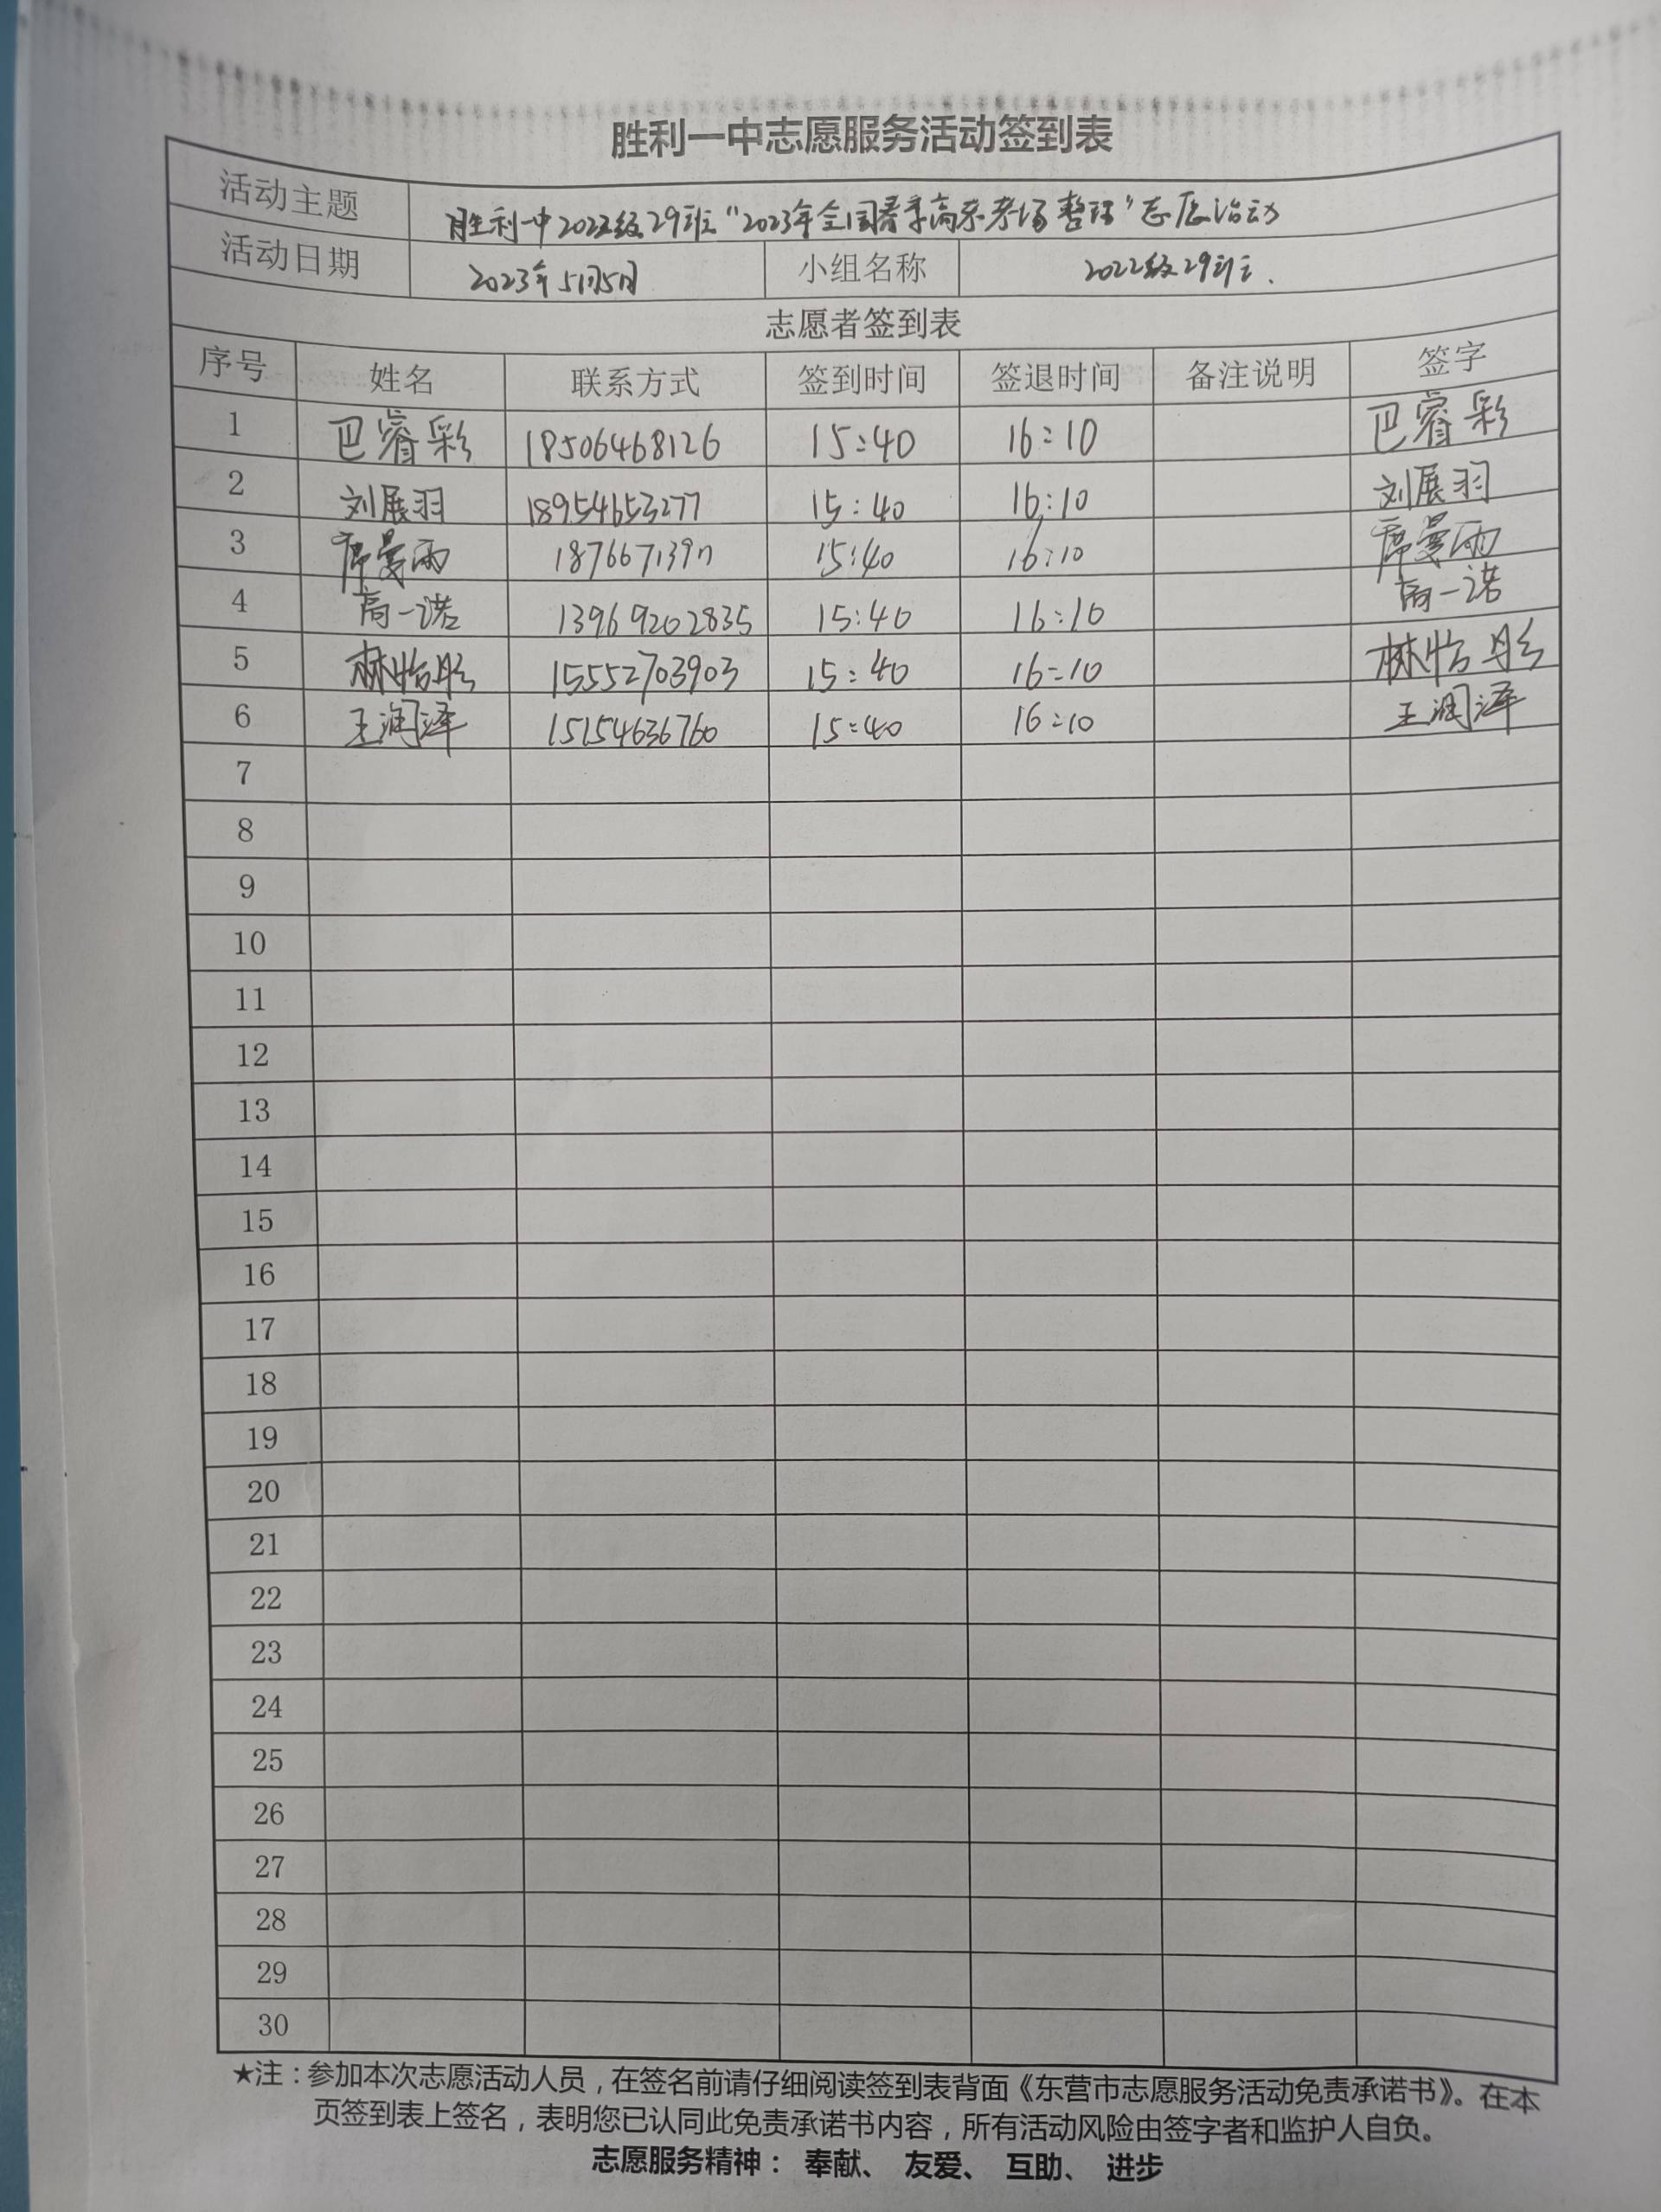 胜利一中志愿服务活动签到表
活动主题 胜利一中2022级29班“2023年全国春季高考考场整理”志愿活动
活动日期 2023年5月5日 小组名称 2022级29班.
志愿者签到表
序号 姓名 联系方式 签到时间 签退时间 备注说明 签字
1 巴睿彩 18506468126 15:40 16:10 巴睿彩
2 刘展羽 18954653277 15:40 16:10 刘展羽
3 席曼雨 15:40 16:10 席曼雨
4 高一诺 13969202835 15:40 16:10 高一诺
5 林怡彤 15552703903 15:40 16:10 林怡彤
6 王润泽 15154636760 15:40 16:10 王润泽
7
8
9
10
11
12
13
14
15
16
17
18
19
20
21
22
23
24
25
26
27
28
29
30
★注：参加本次志愿活动人员，在签名前请仔细阅读签到表背面《东营市志愿服务活动免责承诺书》。在本
页签到表上签名，表明您已认同此免责承诺书内容，所有活动风险由签字者和监护人自负。
志愿服务精神： 奉献、 友爱、 互助、 进步